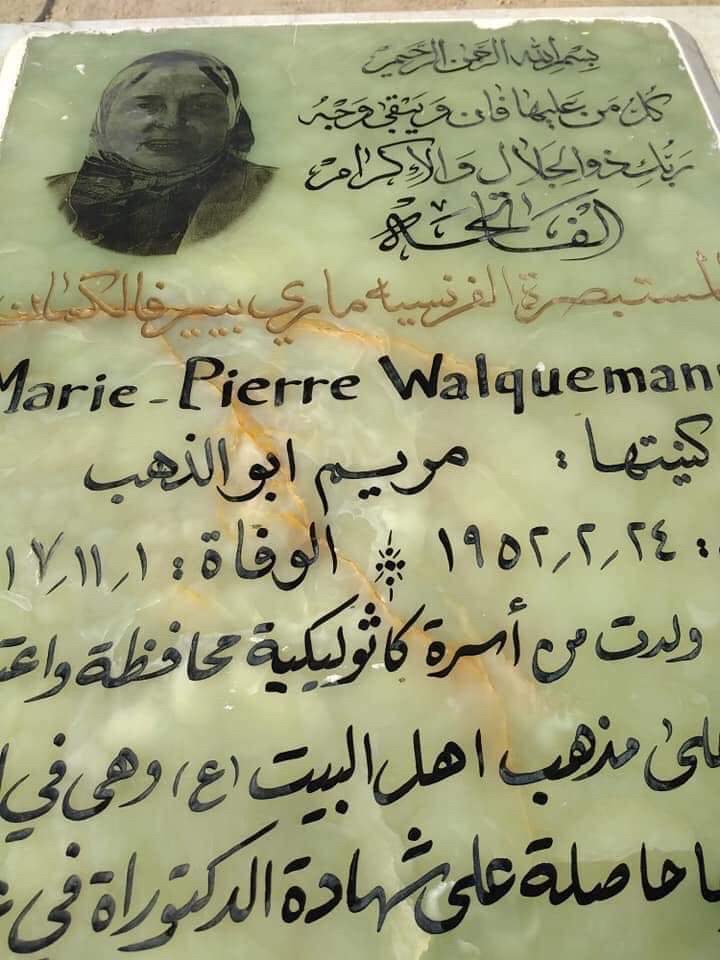 بسم الله الرحمن الرحيم
كل من عليها فان ويبقى وجه
ربك ذو الجلال والإكرام
الفاتحة
المستبصرة الفرنسيه ماري بيير فالكمان
Marie-Pierre Walquemann
كنيتها : مريم ابو الذهب
: ٢٤-٢-١٩٥٢ الوفاة : ١-١١-١٧
ولدت من أسرة كاثوليكية محافظة
على مذهب اهل البيت (ع) وهي في
حاصلة على شهادة الدكتوراة في